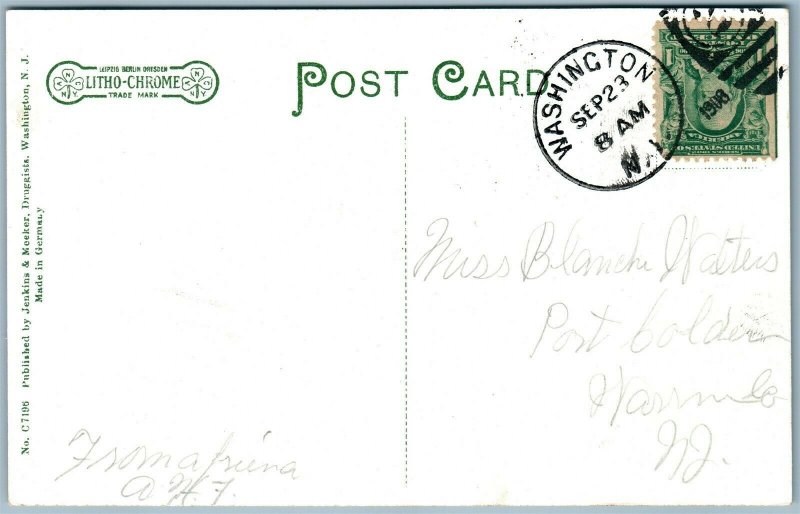 LEIPZIG BERLIN DRESDEN
LITHO-CHROME
TRADE MARK
N N
N.Y. N.Y.
POST CARD
WASHINGTON
SEP 23
8 AM
N.J.
1908
No. C7196 Published by Jenkins & Meeker, Druggists, Washington, N. J.
Made in Germany
Miss Blanche Walters
Port Colden
Warren Co
NJ.
From a friend
A.H.F.